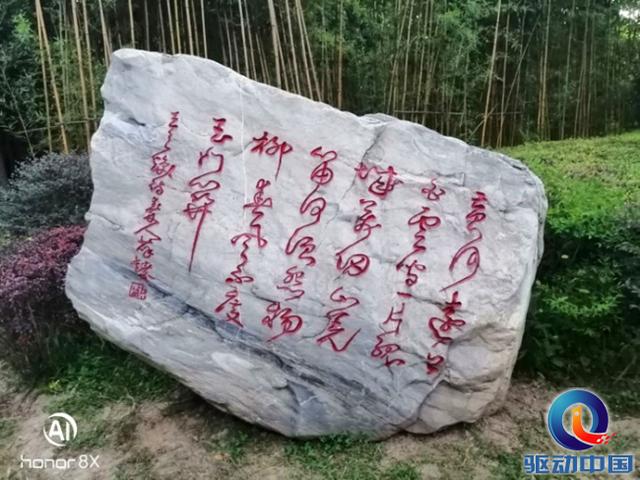 黄河遠上
白雲间一片孤
城万仞山羌
笛何须怨杨
柳春风不度
玉门關
王之涣诗
AI
honor 8X
驱动中国